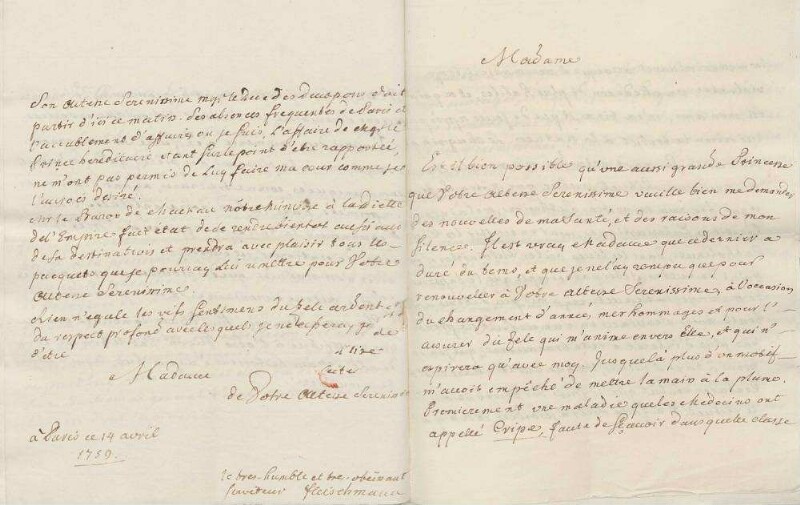 Son Altesse Serenissime Mgr le Duc des Deuxponts doit
partir d'ici ce matin. Ses absences frequentes de Paris et
l'accablement d'affaires ou je suis, l'affaire de
Prince hereditaire etant sur le point d'être rapportée,
ne m'ont pas permis de Luy faire ma cour comme je
l'aurois desiré.
Mr le Baron de Mackau nôtre Ministre à la Diette
de l'Empire fait état de se rendre bientot aussi au lieu
de sa destination et prendra avec plaisir tous les
pacquets que je pourray lui remettre pour Votre
Altesse Serenissime.
Rien n'egale les vifs sentimens du Zele ardent et
du respect profond avec lesquels je ne cesseray de
d'être
Madame
de Votre Altesse Serenissime
à Paris ce 14 avril
1759.
le tres-humble et tres-obeissant
serviteur Fleischmann
Madame
Est il bien possible qu'une aussi grande Princesse
que Votre Altesse Serenissime veuille bien me demander
des nouvelles de ma Santé, et des raisons de mon
silence. Il est vray Madame que ce dernier a
duré du tems, et que je ne l'ay rompu que pour
renouveller à Votre Altesse Serenissime, à l'occasion
du changement d'année, mes hommages et pour l'
assurer du Zele qui m'anime envers Elle, et qui n'
expirera qu'avec moy. Jusques là plus d'un motif
m'avoit empêché de mettre la main à la plume.
Premierement une maladie que les Medecins ont
appellé Gripe, faute de sçavoir dans quelle classe